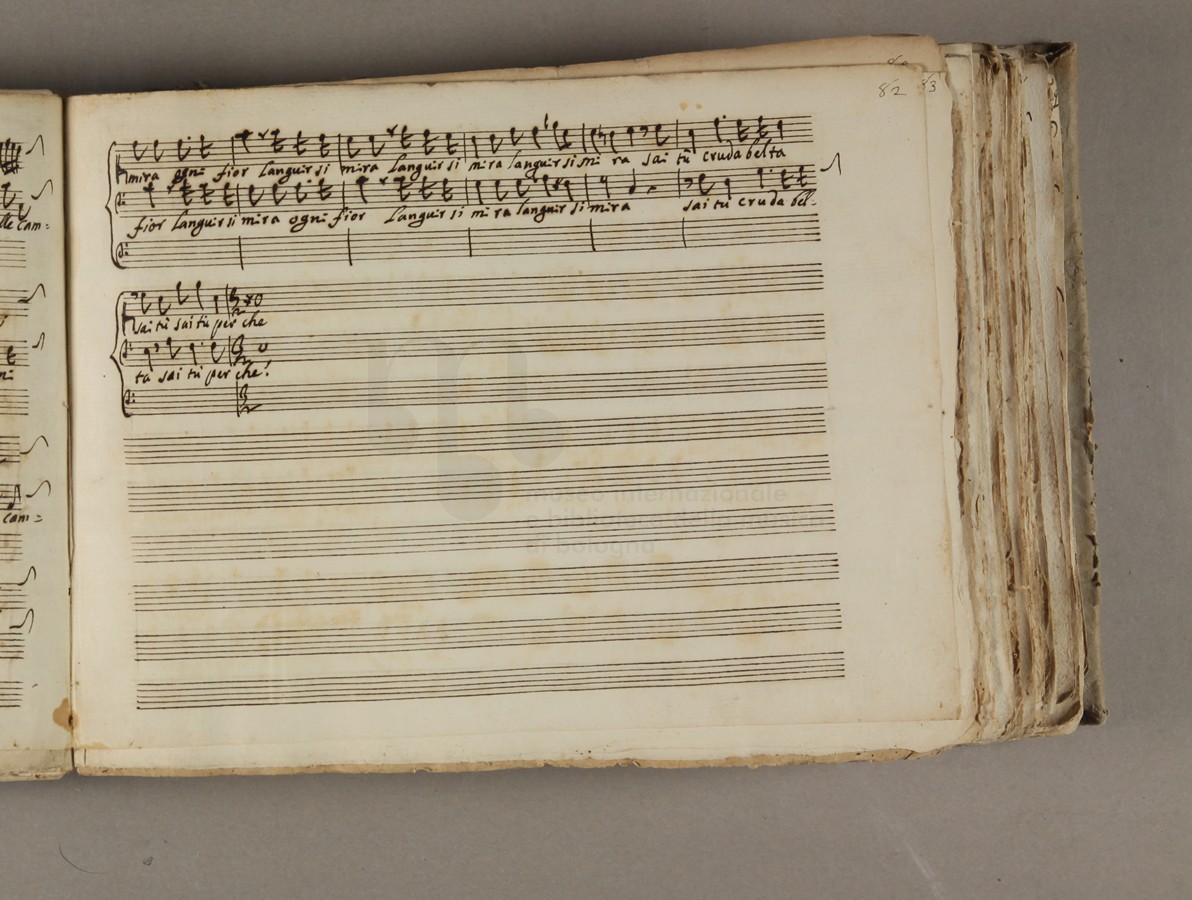 82 83
mira ogni fior languir si mira languir si mira languir si mi ra sai tù cruda belta
fior languir si mira ogni fior languir si mi ra languir si mira sai tù cruda bel-
sai tù sai tù per che
tà sai tù per che?
lle cam=
cam=
museo internazionale
e biblioteca della musica
di bologna